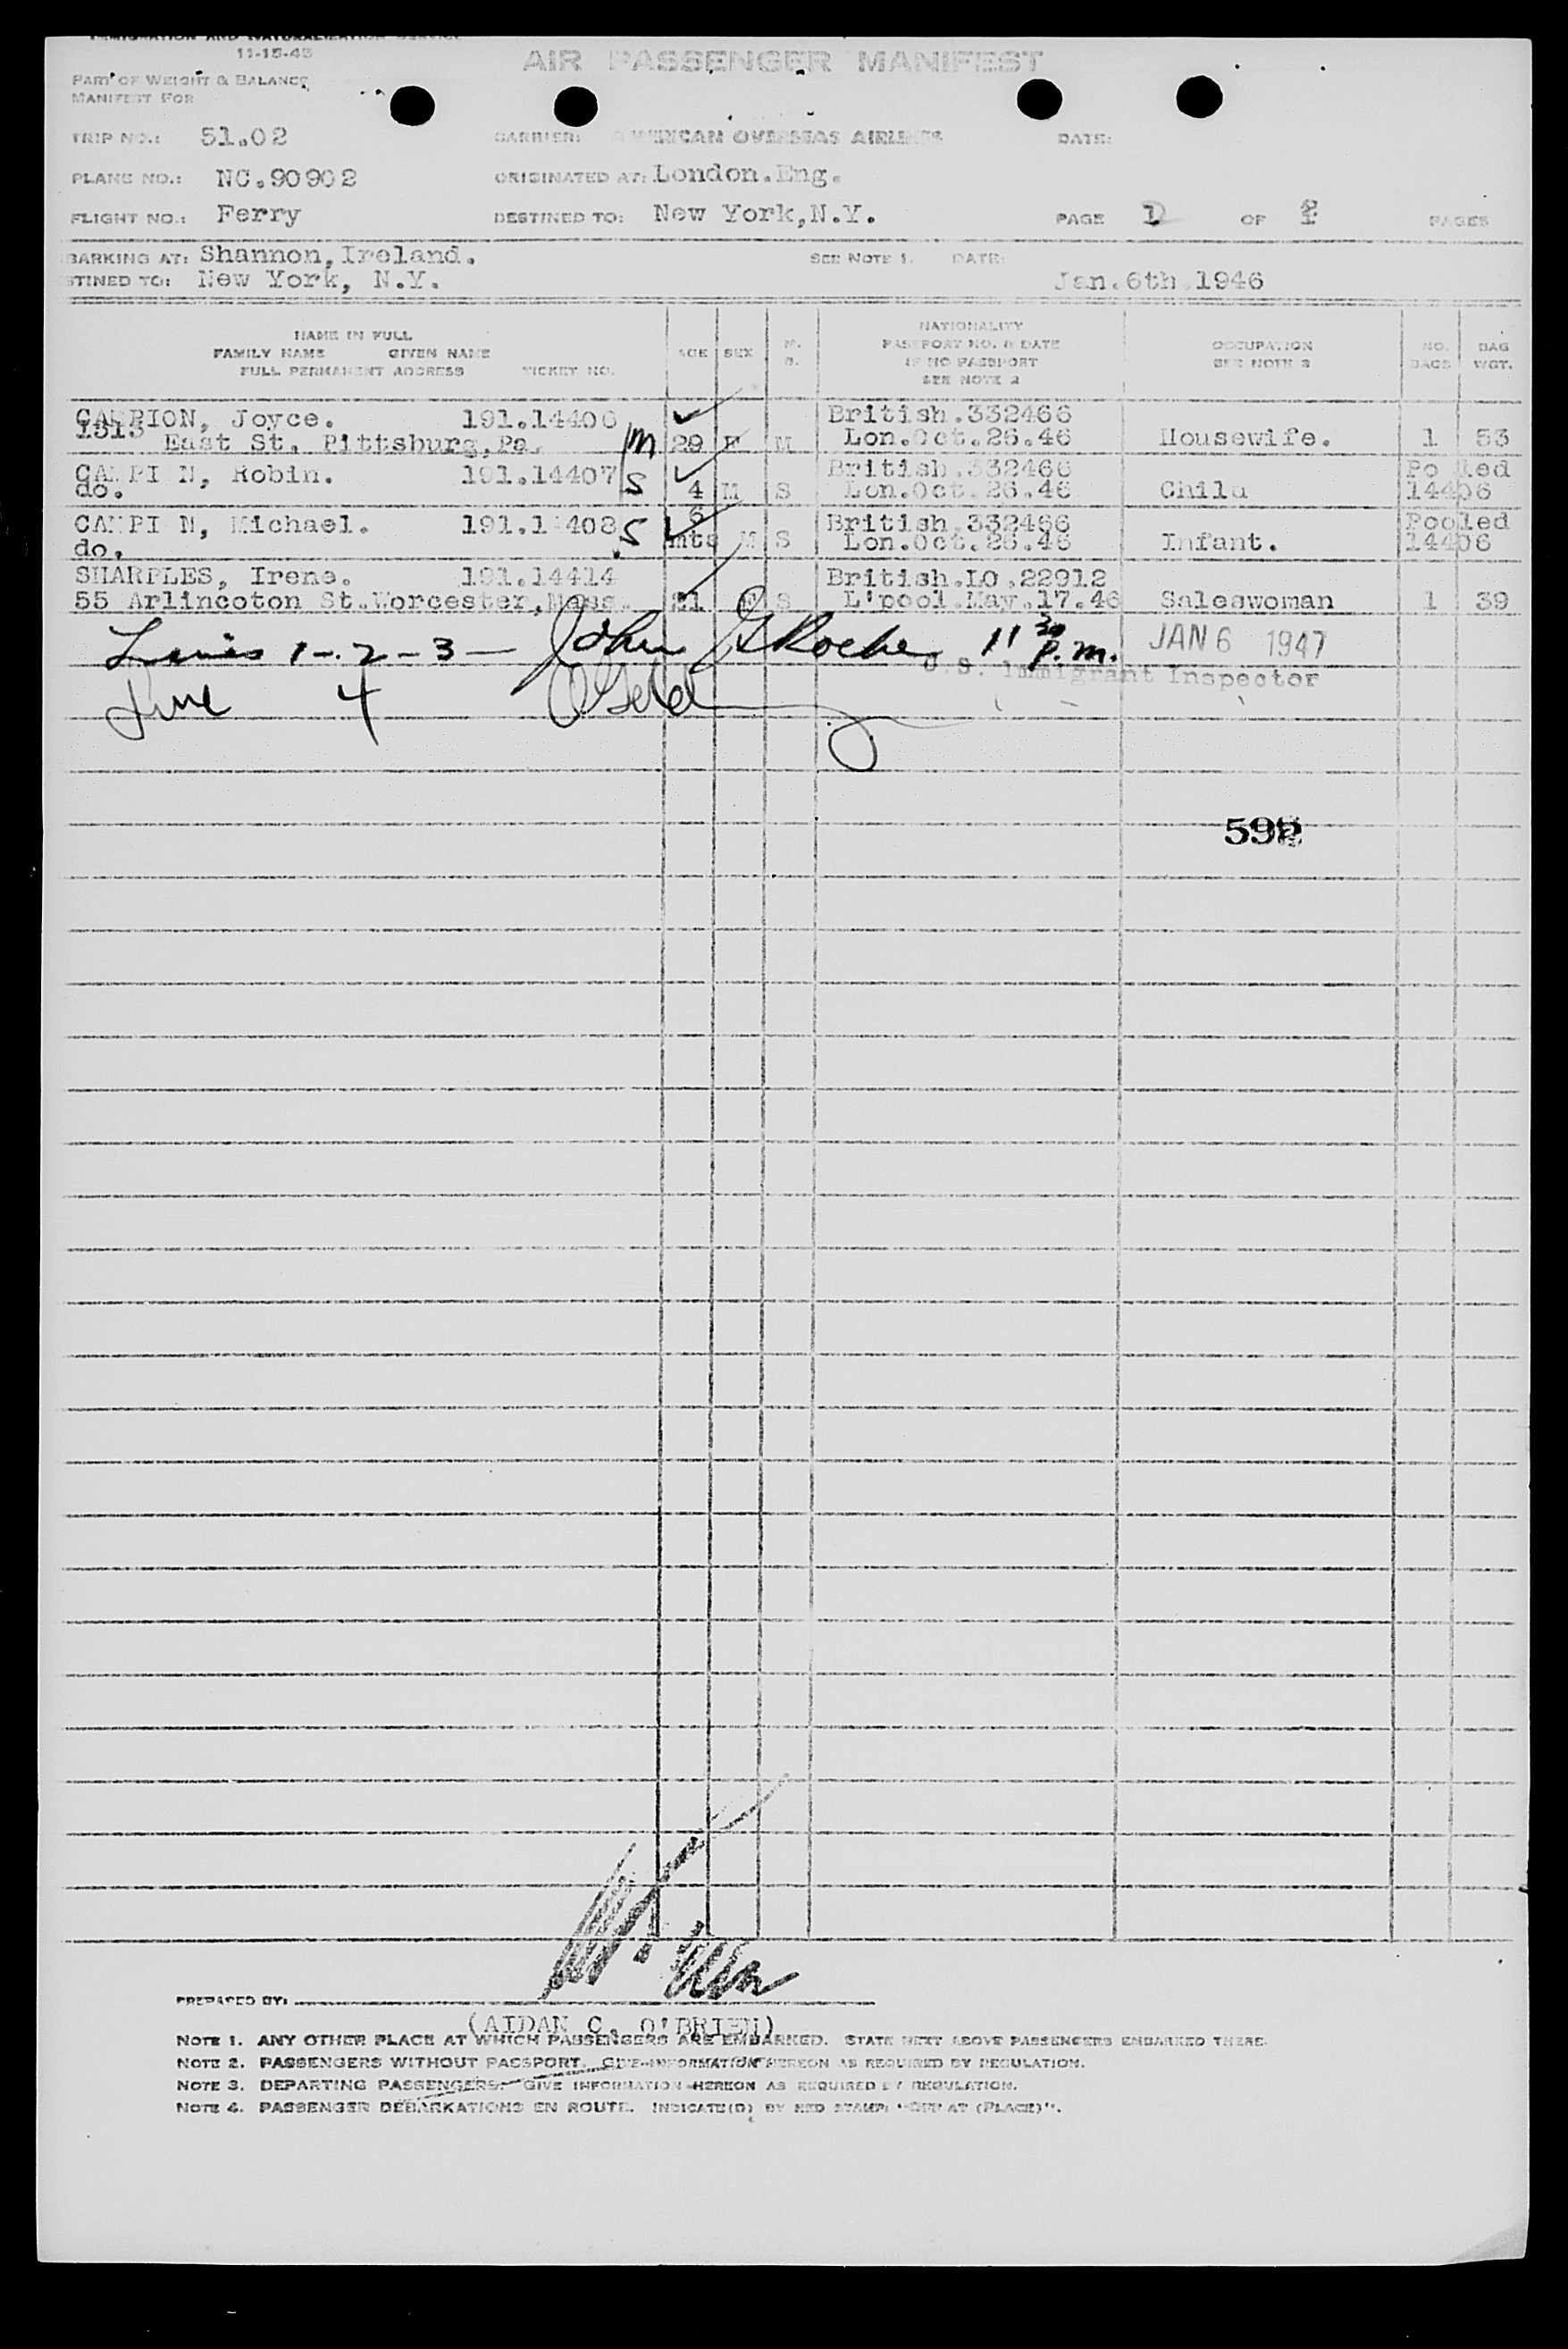 IMMIGRATION AND NATURALIZATION SERVICE
11-15-45
AIR PASSENGER MANIFEST
PART OF WEIGHT & BALANCE
MANIFEST FOR
TRIP NO.: 51.02 CARRIER: AMERICAN OVERSEAS AIRLINES DATE:
PLANE NO.: NC.90902 ORIGINATED AT: London.Eng.
FLIGHT NO.: Ferry DESTINED TO: New York,N.Y. PAGE 1 OF PAGES
BARKING AT: Shannon,Ireland. SEE NOTE 1. DATE:
STINED TO: New York, N.Y. Jan.6th.1946
NAME IN FULL
FAMILY NAME GIVEN NAME
FULL PERMANENT ADDRESS TICKET NO.
AGE SEX M. S.
NATIONALITY
PASSPORT NO. & DATE
IF NO PASSPORT
SEE NOTE 2
OCCUPATION
SEE NOTE 3
NO. BAGS
BAG WGT.
Joyce. 191.14406 British.332466
1313 East St. Pittsburg,Pa. M 29 F M Lon.Oct.26.46 Housewife. 1 53
Robin. 191.14407 British.332466 Pooled
do. S 4 M S Lon.Oct.26.46 Child 14406
Michael. 191.14408 6 British.332466 Pooled
do. S mts M S Lon.Oct.26.46 Infant. 14406
SHARPLES, Irene. 191.14414 British.LO.22912
55 Arlincoton St.Worcester,Mass. 21 F S L'pool.May.17.46 Saleswoman 1 39
Lines 1-2-3- John Roche 11 30 P.m. JAN 6 1947
U.S. Immigrant Inspector
Line 4
PREPARED BY:
(AIDAN C. O'BRIEN)
NOTE 1. ANY OTHER PLACE AT WHICH PASSENGERS ARE EMBARKED. STATE NEXT ABOVE PASSENGERS EMBARKED THERE.
NOTE 2. PASSENGERS WITHOUT PASSPORT. GIVE INFORMATION HEREON AS REQUIRED BY REGULATION.
NOTE 3. DEPARTING PASSENGERS. GIVE INFORMATION HEREON AS REQUIRED BY REGULATION.
NOTE 4. PASSENGER DEBARKATIONS EN ROUTE. INDICATE(D) BY RED STAMP: "OFF AT (PLACE)".